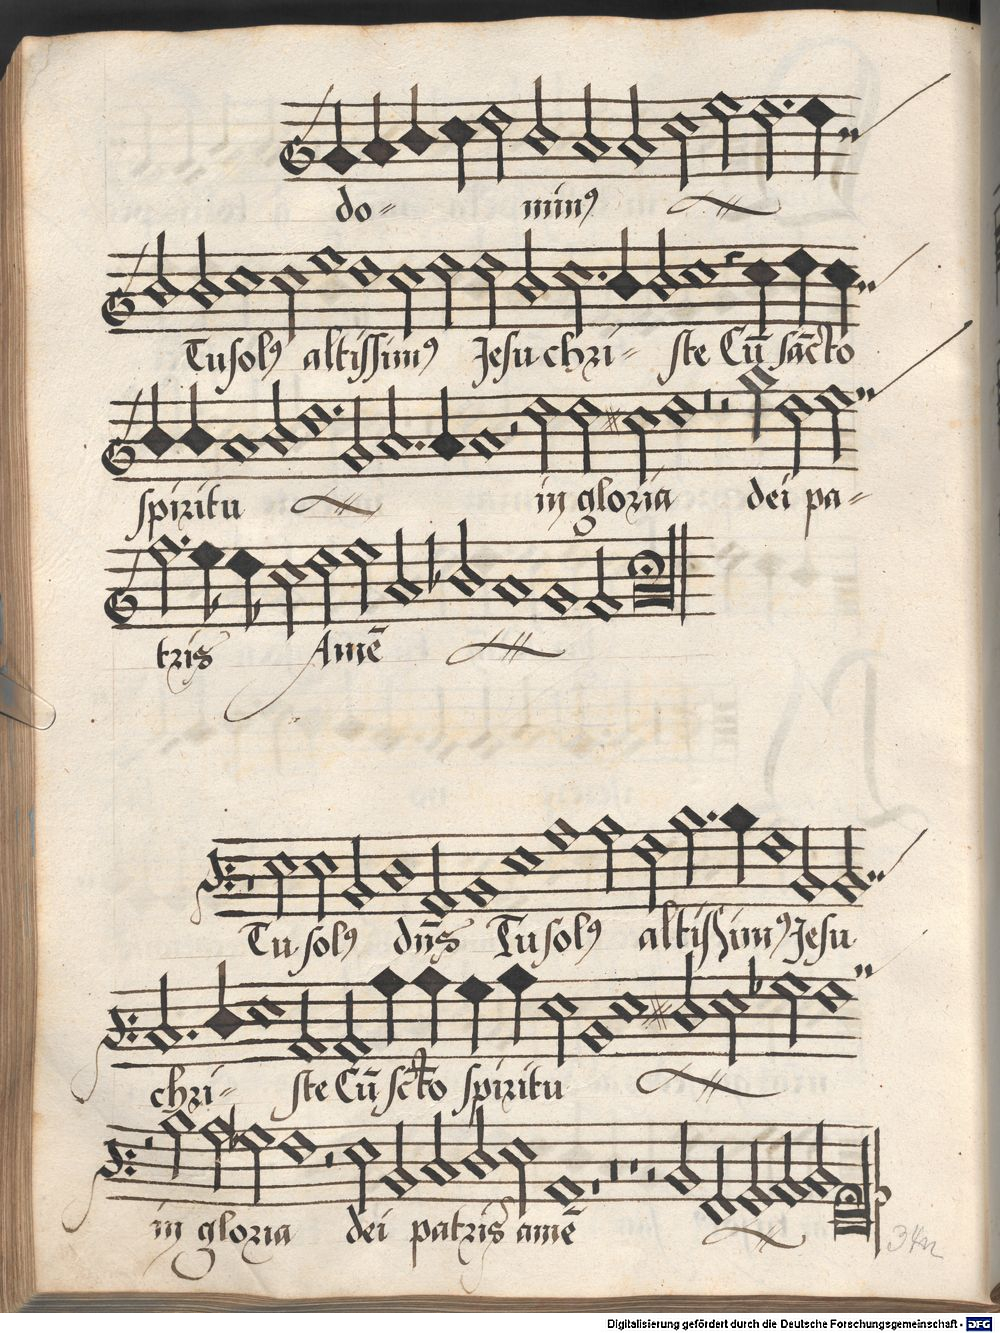 do= minꝰ
Tu solꝰ altissimꝰ Jesu chri= ste Cū sāc̄to
spiritu in gloria dei pa=
tris Amē
Tu solꝰ dn̄s Tu solꝰ altissimꝰ Jesu
chri= ste Cū sc̄to spiritu
in gloria dei patris amē
Digitalisierung gefördert durch die Deutsche Forschungsgemeinschaft - DFG